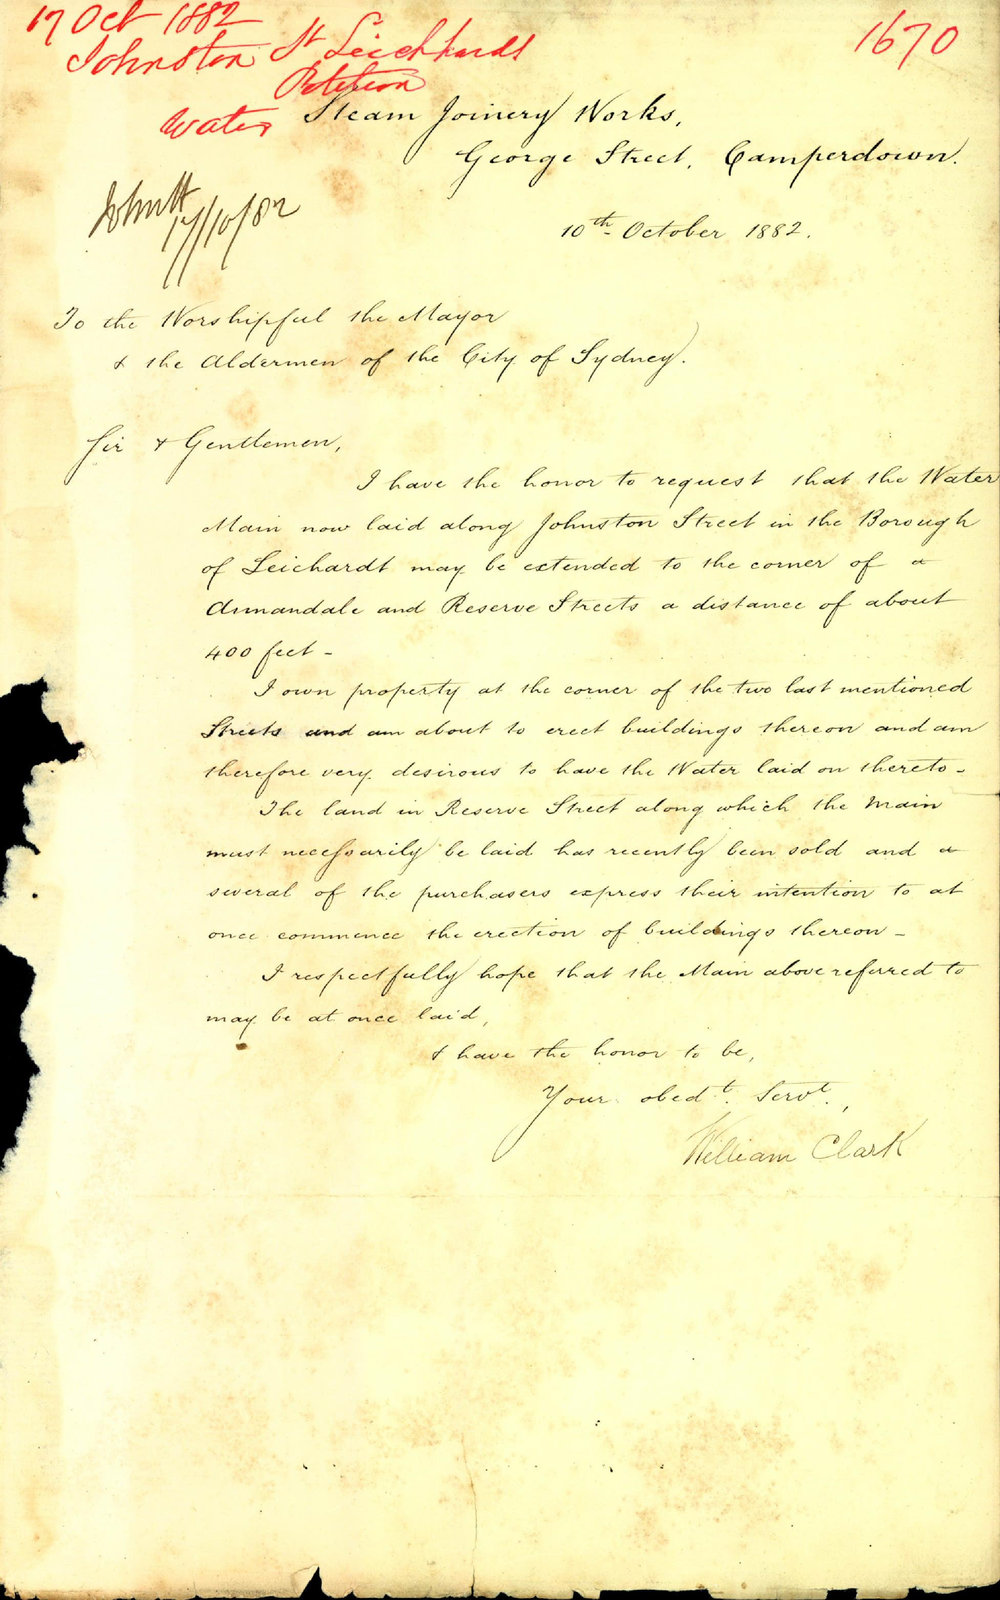 17 Oct 1882
1670
Johnston St Leichhardt
Petition
Water
Steam Joinery Works,
George Street, Camperdown.
17/10/82
10th October 1882.
To the Worshipful the Mayor
& the Aldermen of the City of Sydney.
Sir & Gentlemen,
I have the honor to request that the Water
Main now laid along Johnston Street in the Borough
of Leichardt may be extended to the corner of
Annandale and Reserve Streets a distance of about
400 feet -
I own property at the corner of the two last mentioned
Streets and am about to erect buildings thereon and am
therefore very desirous to have the Water laid on thereto -
The land in Reserve Street along which the Main
must necessarily be laid has recently been sold and
several of the purchasers express their intention to at
once commence the erection of buildings thereon -
I respectfully hope that the Main above referred to
may be at once laid,
I have the honor to be,
Your obedt. Servt.,
William Clark